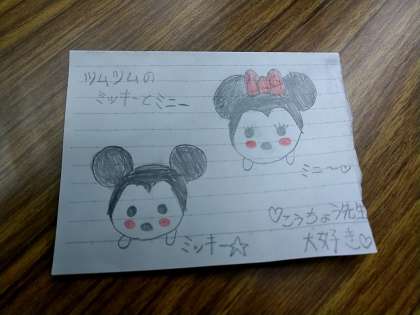 ツムツムの
ミッキーとミニー
ミニー〜♡
ミッキー☆
♡こうちょう先生
大好き♡